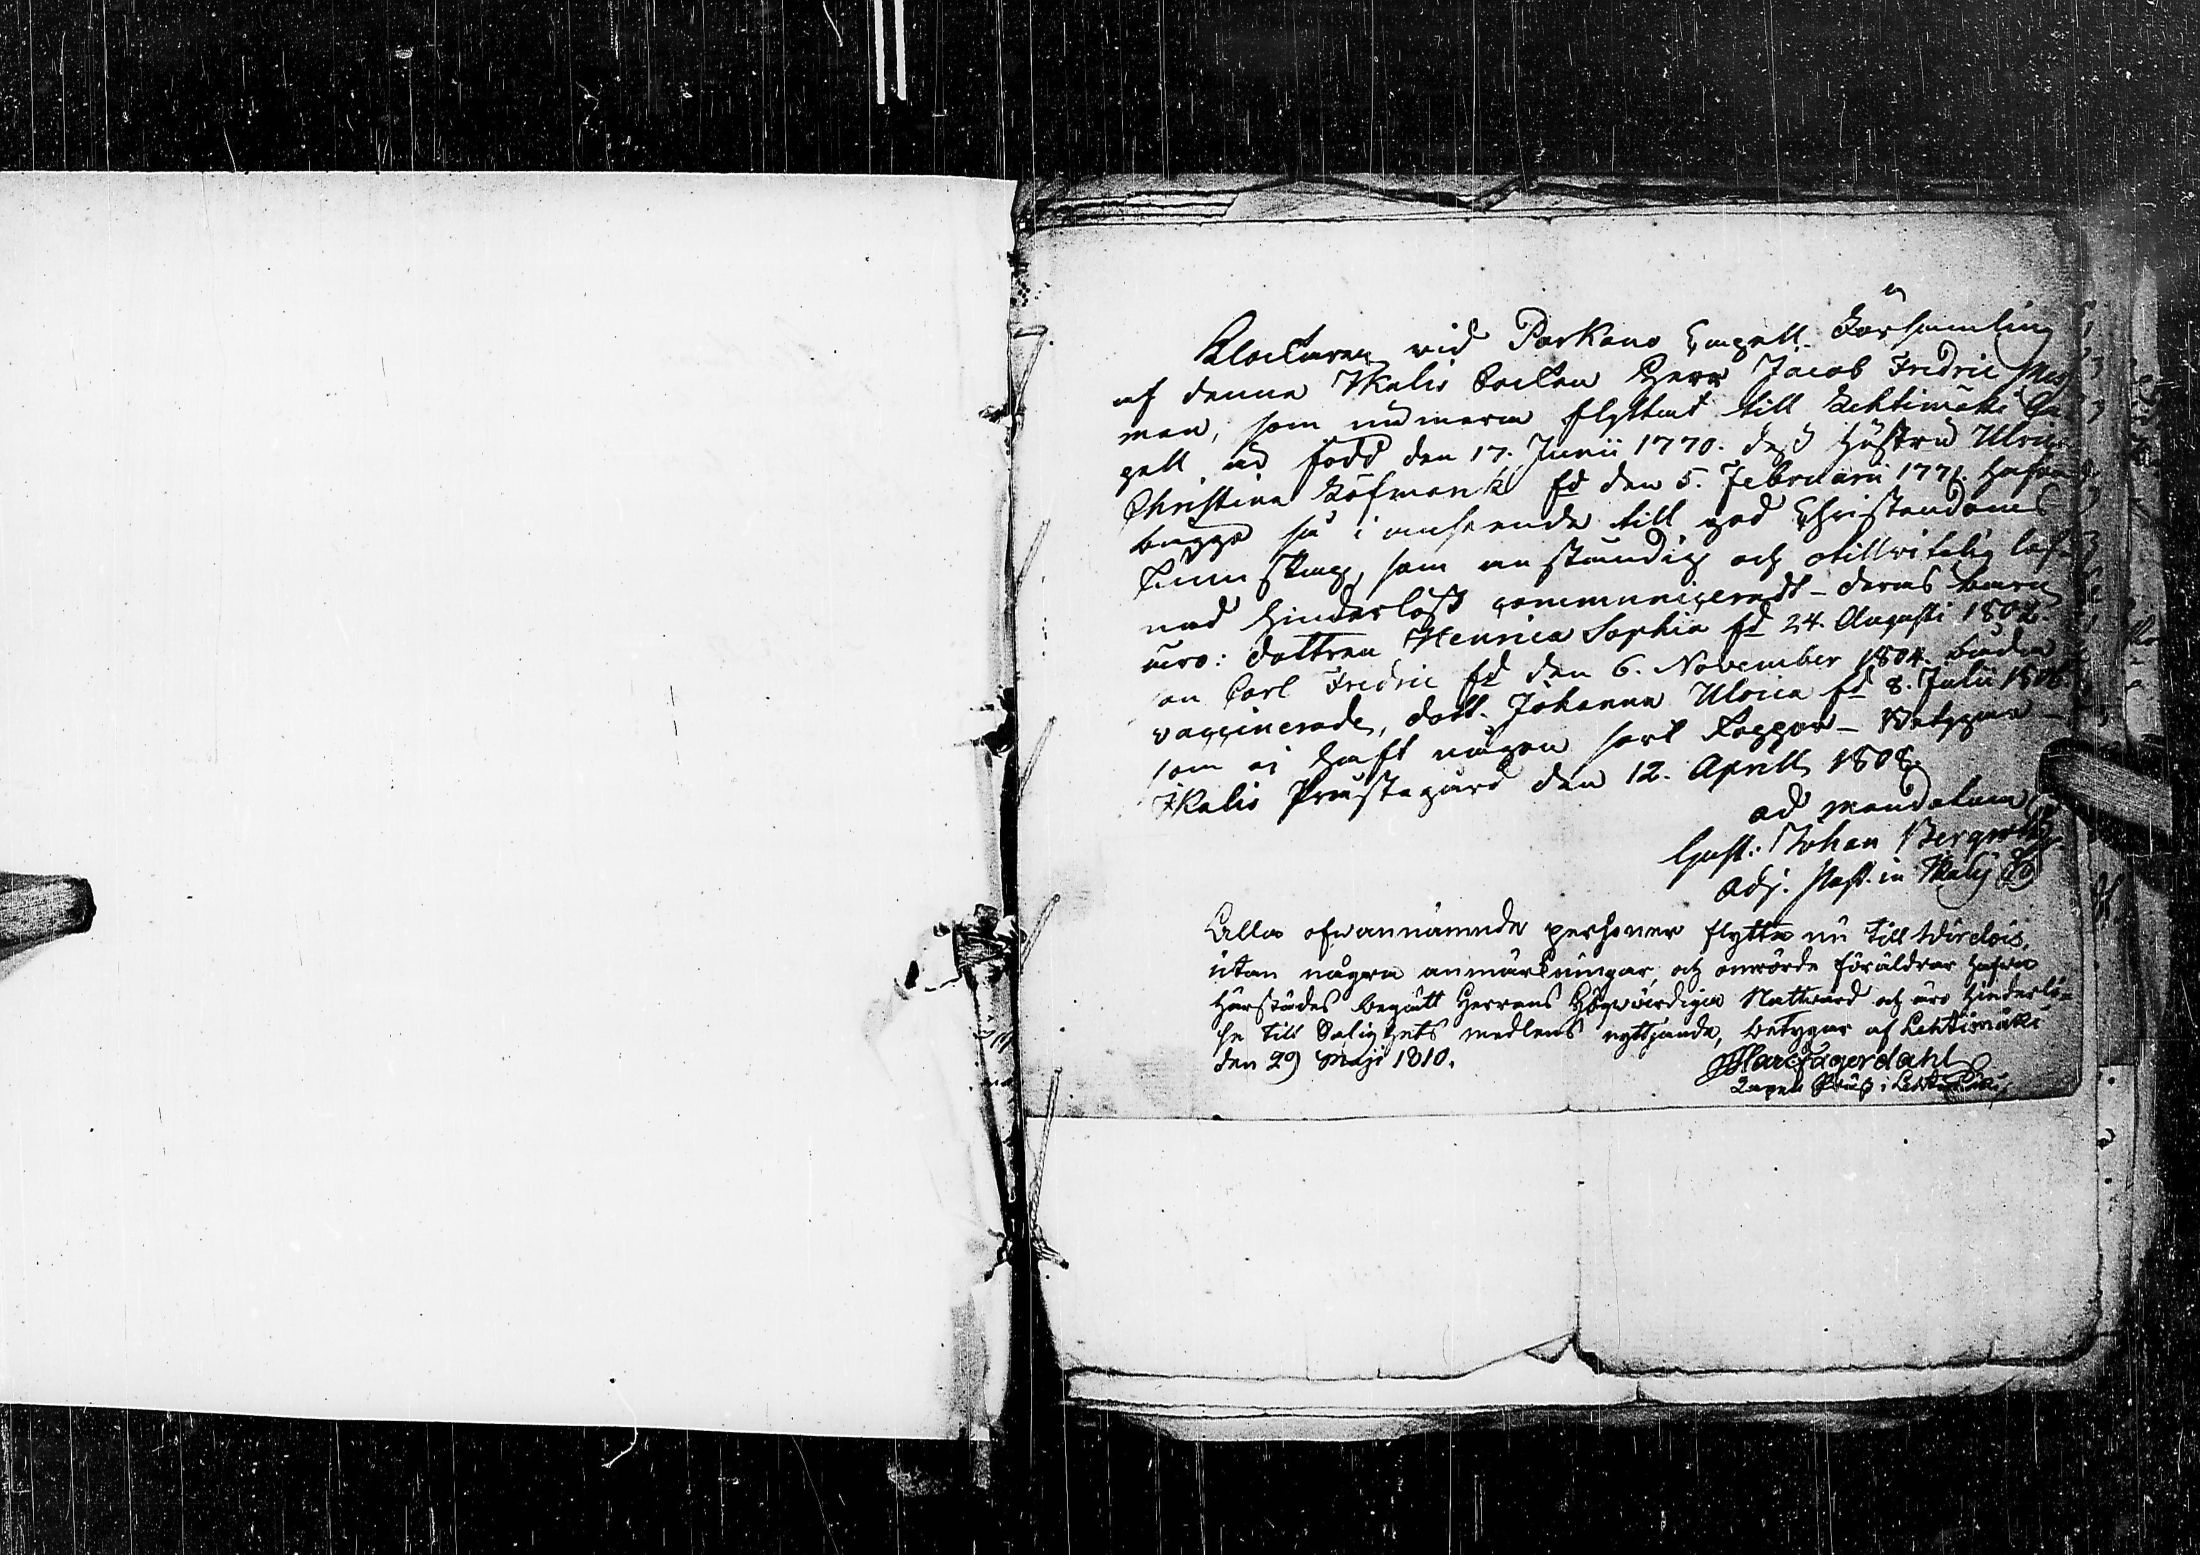 Klockaren vid Parkano Capell Församling
af denna Ikalis Socken Herr Jacob Fredric
man, som nu mera flyttat till Lehtimäki Ca-
pell är född den 17. Junii 1770. dess hustru Ulrica
Christina Löfmark fd den 5. Februarii 1771. hafva
bägge så i anseende till god Christendoms
kunskap, som anständig och otillvitelig lef-
nad hinderlöst communicerat - deras barn
äro: dottren Henrica Sophia fd 24. Augusti 1802.
son Carl Fredric fd den 6. November 1804. båda
vaccinerade, dott. Johanna Ulrica fd 8. Julii 1806
som ej haft någon sort koppor - Betygar -
Ikalis Prästegård den 12. Aprill 1808.
ad mandatum
Gust: Johan Bergroth
Adj. Past. in Ikalis
Alla ofvannämnde personer flytta nu till Wirdois,
utan några anmärkningar, och omrörde föräldrar hafva
härstädes begått Herrans Högvärdiga Nattvard och äro hinderlö-
se till Salighets medlens nyttjande, betygar af Lehtimäki
den 29 Maji 1810.
Fagerdahl
Capell Präst i Lehtimäki